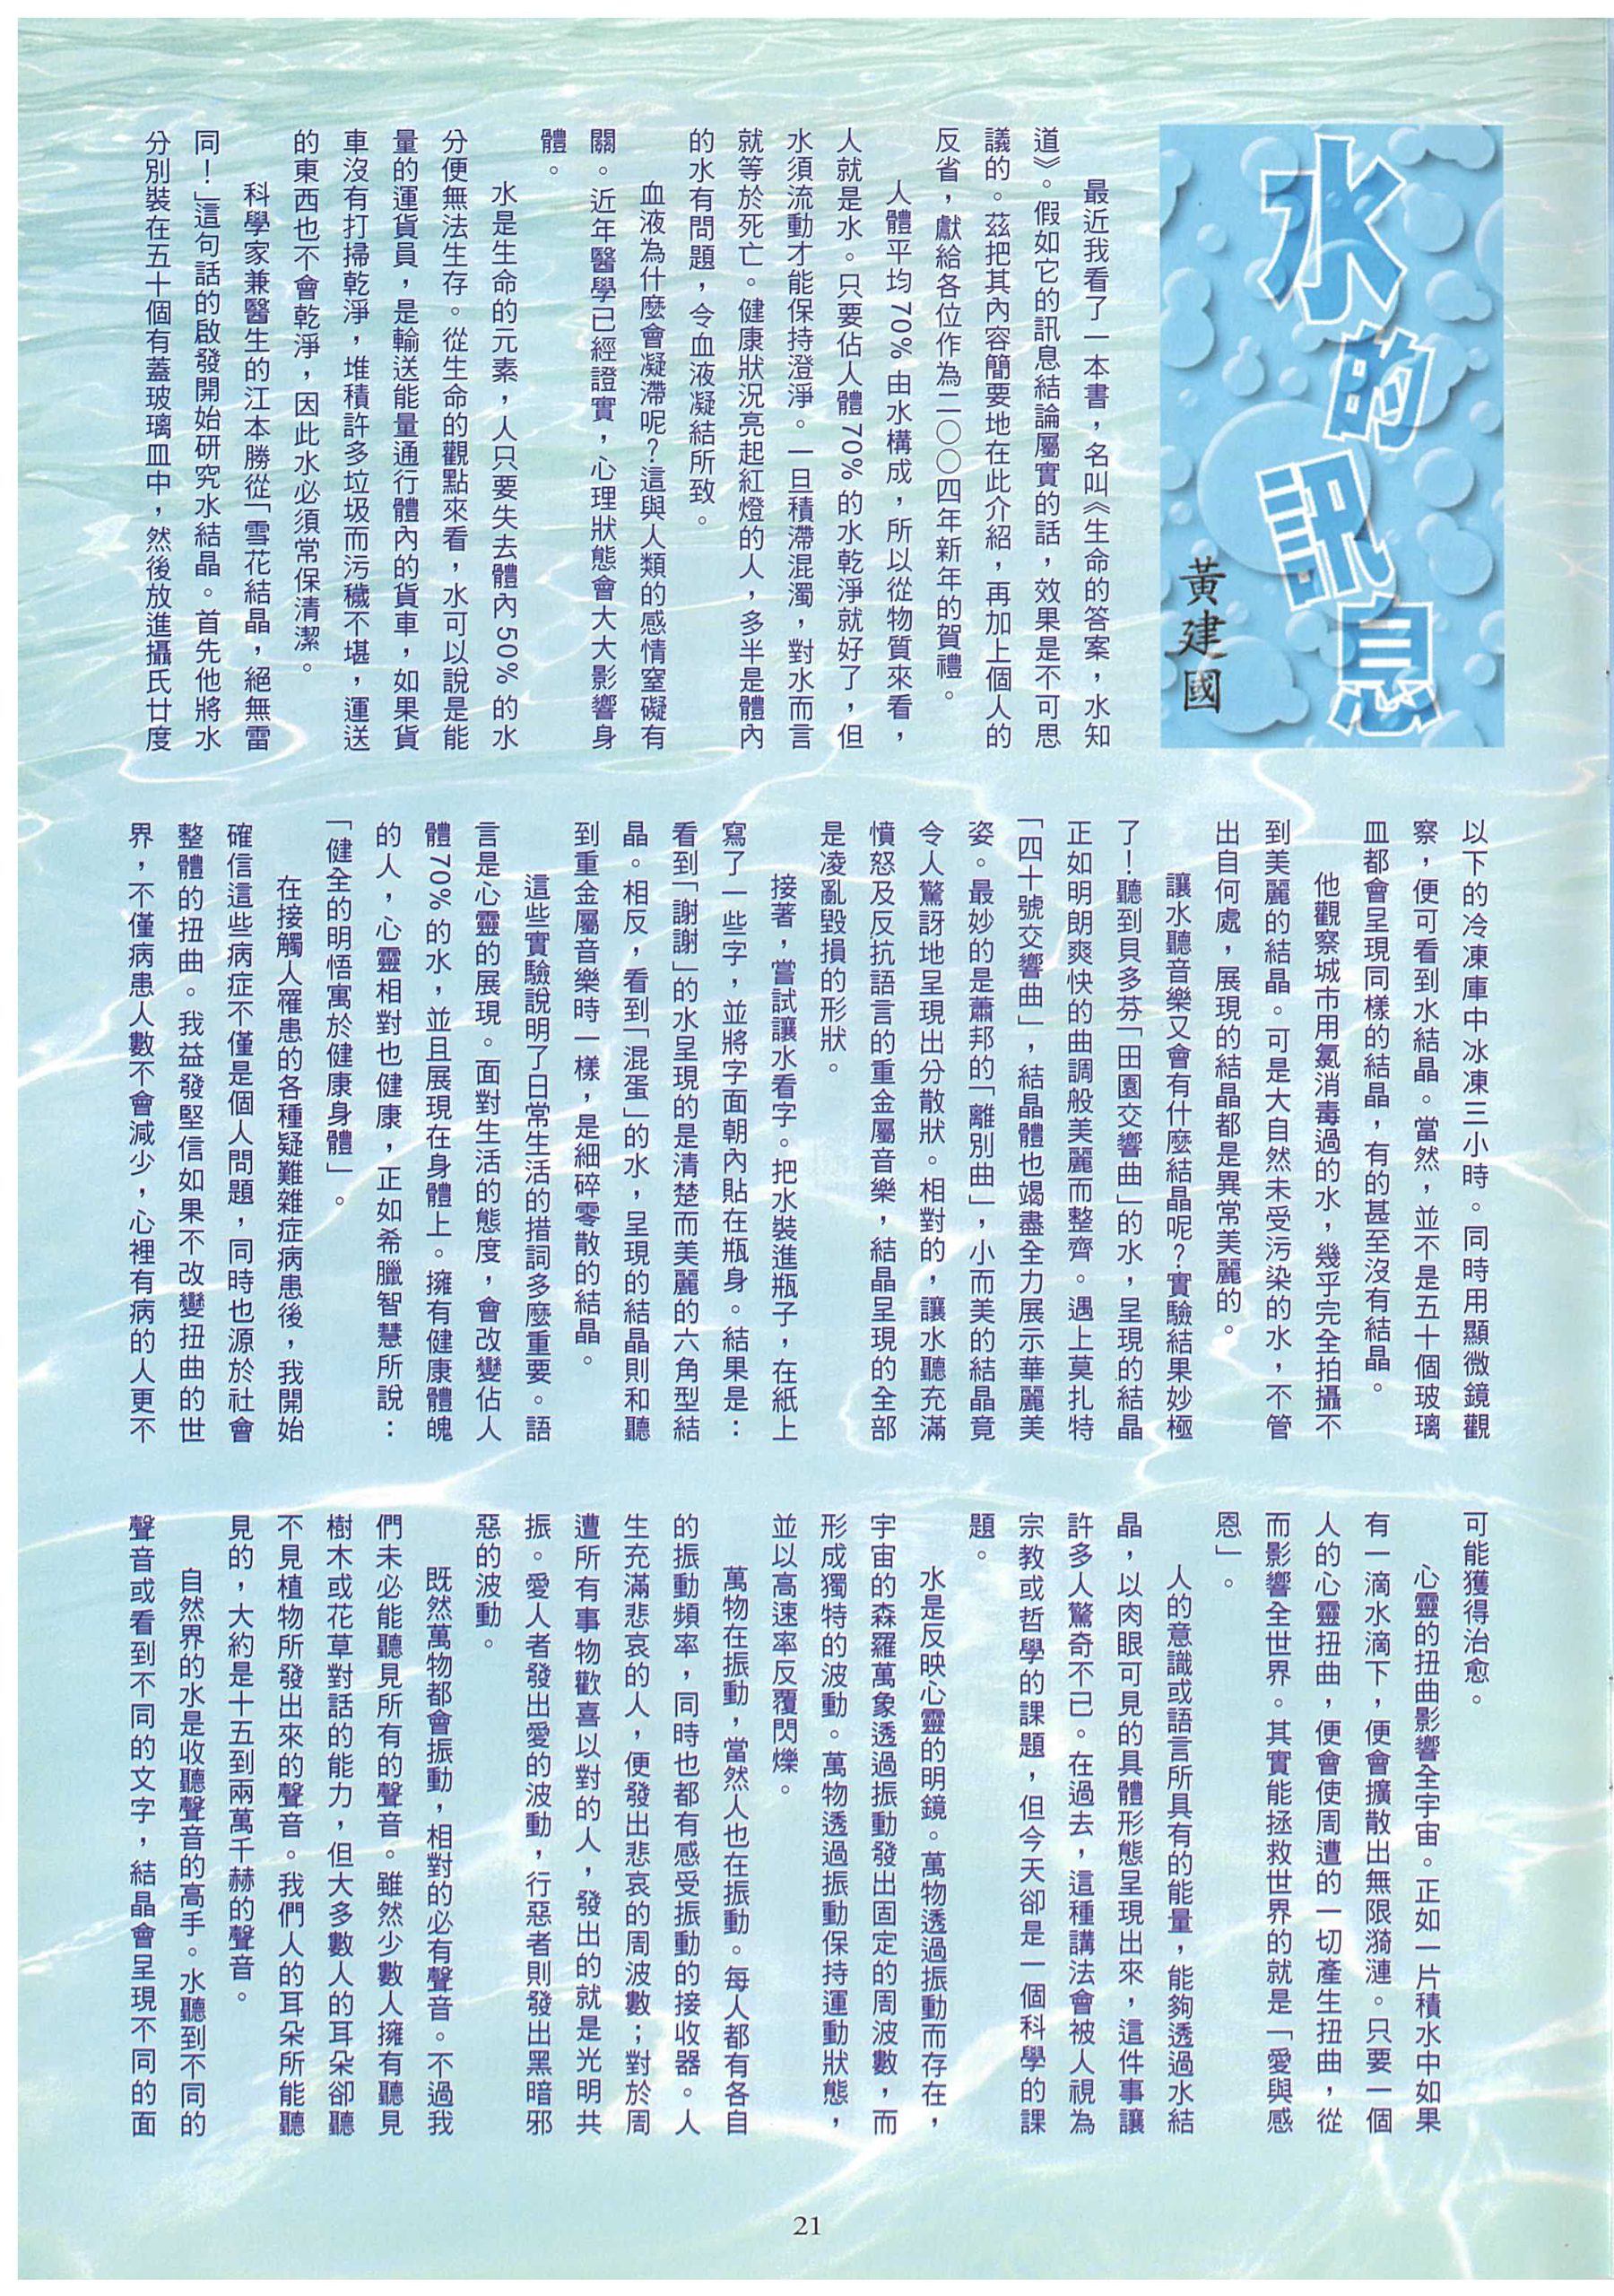 水的訊息
黃建國
最近我看了一本書，名叫《生命的答案，水知
道》。假如它的訊息結論屬實的話，效果是不可思
議的。茲把其內容簡要地在此介紹，再加上個人的
反省，獻給各位作為二〇〇四年新年的賀禮。
人體平均70%由水構成，所以從物質來看，
人就是水。只要佔人體70%的水乾淨就好了，但
水須流動才能保持澄淨。一旦積滯混濁，對水而言
就等於死亡。健康狀況亮起紅燈的人，多半是體內
的水有問題，令血液凝結所致。
血液為什麼會凝滯呢？這與人類的感情窒礙有
關。近年醫學已經證實，心理狀態會大大影響身
體。
水是生命的元素，人只要失去體內50%的水
分便無法生存。從生命的觀點來看，水可以說是能
量的運貨員，是輸送能量通行體內的貨車，如果貨
車沒有打掃乾淨，堆積許多垃圾而污穢不堪，運送
的東西也不會乾淨，因此水必須常保清潔。
科學家兼醫生的江本勝從「雪花結晶，絕無雷
同！」這句話的啟發開始研究水結晶。首先他將水
分別裝在五十個有蓋玻璃皿中，然後放進攝氏廿度
以下的冷凍庫中冰凍三小時。同時用顯微鏡觀
察，便可看到水結晶。當然，並不是五十個玻璃
皿都會呈現同樣的結晶，有的甚至沒有結晶。
他觀察城市用氯消毒過的水，幾乎完全拍攝不
到美麗的結晶。可是大自然未受污染的水，不管
出自何處，展現的結晶都是異常美麗的。
讓水聽音樂又會有什麼結晶呢？實驗結果妙極
了！聽到貝多芬「田園交響曲」的水，呈現的結晶
正如明朗爽快的曲調般美麗而整齊。遇上莫扎特
「四十號交響曲」，結晶體也竭盡全力展示華麗美
姿。最妙的是蕭邦的「離別曲」，小而美的結晶竟
令人驚訝地呈現出分散狀。相對的，讓水聽充滿
憤怒及反抗語言的重金屬音樂，結晶呈現的全部
是凌亂毀損的形狀。
接著，嘗試讓水看字。把水裝進瓶子，在紙上
寫了一些字，並將字面朝內貼在瓶身。結果是：
看到「謝謝」的水呈現的是清楚而美麗的六角型結
晶。相反，看到「混蛋」的水，呈現的結晶則和聽
到重金屬音樂時一樣，是細碎零散的結晶。
這些實驗說明了日常生活的措詞多麼重要。語
言是心靈的展現。面對生活的態度，會改變佔人
體70%的水，並且展現在身體上。擁有健康體魄
的人，心靈相對也健康，正如希臘智慧所說：
「健全的明悟寓於健康身體」。
在接觸人罹患的各種疑難雜症病患後，我開始
確信這些病症不僅是個人問題，同時也源於社會
整體的扭曲。我益發堅信如果不改變扭曲的世
界，不僅病患人數不會減少，心裡有病的人更不
可能獲得治愈。
心靈的扭曲影響全宇宙。正如一片積水中如果
有一滴水滴下，便會擴散出無限漪漣。只要一個
人的心靈扭曲，便會使周遭的一切產生扭曲，從
而影響全世界。其實能拯救世界的就是「愛與感
恩」。
人的意識或語言所具有的能量，能夠透過水結
晶，以肉眼可見的具體形態呈現出來，這件事讓
許多人驚奇不已。在過去，這種講法會被人視為
宗教或哲學的課題，但今天卻是一個科學的課
題。
水是反映心靈的明鏡。萬物透過振動而存在，
宇宙的森羅萬象透過振動發出固定的周波數，而
形成獨特的波動。萬物透過振動保持運動狀態，
並以高速率反覆閃爍。
萬物在振動，當然人也在振動。每人都有各自
的振動頻率，同時也都有感受振動的接收器。人
生充滿悲哀的人，便發出悲哀的周波數；對於周
遭所有事物歡喜以對的人，發出的就是光明共
振。愛人者發出愛的波動，行惡者則發出黑暗邪
惡的波動。
既然萬物都會振動，相對的必有聲音。不過我
們未必能聽見所有的聲音。雖然少數人擁有聽見
樹木或花草對話的能力，但大多數人的耳朵卻聽
不見植物所發出來的聲音。我們人的耳朵所能聽
見的，大約是十五到兩萬千赫的聲音。
自然界的水是收聽聲音的高手。水聽到不同的
聲音或看到不同的文字，結晶會呈現不同的面
21